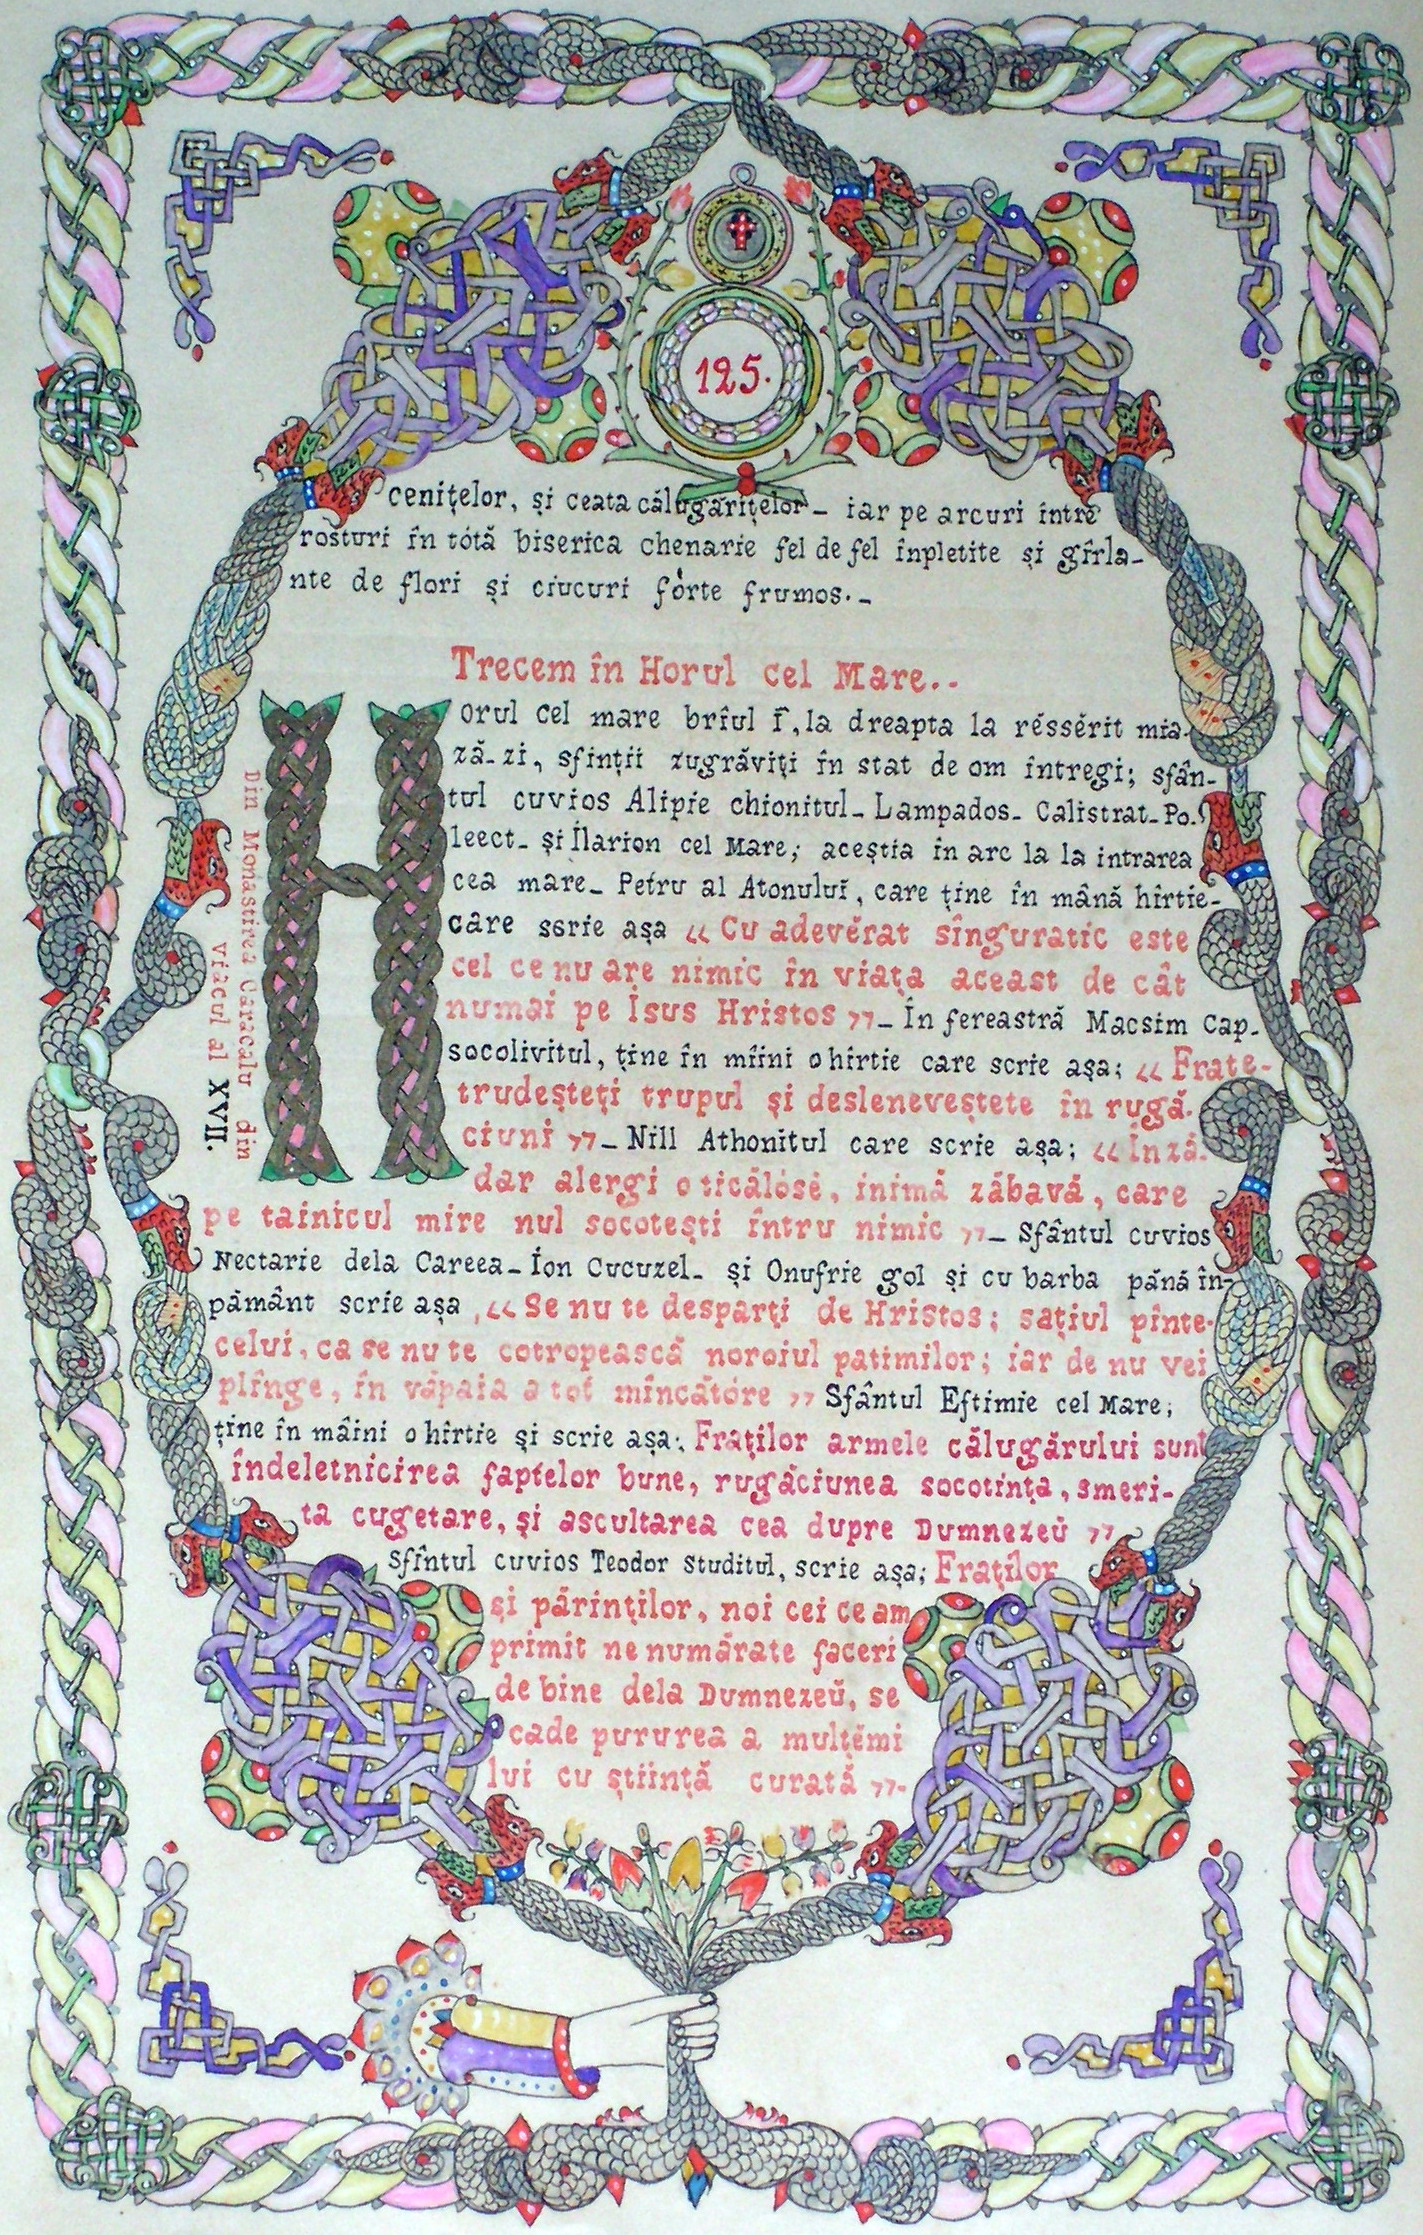 125.
cenițelor, și ceata călugărițelor_ iar pe arcuri între
rosturi în tótă biserica chenarie fel de fel înpletite și gîrla-
nte de flori și ciucuri fórte frumos._
Trecem în Horul cel Mare..
Horul cel mare brîul Ī, la dreapta la rĕssĕrit mia-
ză-zi, sfinții zugrăviți în stat de om întregi; sfân-
tul cuvios Alipie chionitul_ Lampados_ Calistrat_ Po-
leect_ și Ilarion cel Mare; aceștia în arc la la intrarea
cea mare_ Petru al Atonului, care ține în mână hîrtie-
care sgrie așa „ Cu adevĕrat sînguratic este
cel ce nu are nimic în viața aceast de cât
numai pe Isus Hristos ”_ În fereastră Macsim Cap-
socolivitul, ține în mîini o hîrtie care scrie așa; „ Frate-
trudeșteți trupul și desleneveștete în rugă-
ciuni ”_ Nill Athonitul care scrie așa; „ Înză-
dar alergi o ticălósĕ, inimă zăbavă, care
pe tainicul mire nul socotești întru nimic ”_ Sfântul cuvios
Nectarie dela Careea_ Íon Cucuzel_ și Onufrie gol și cu barba pănă în-
pământ scrie așa, „ Se nu te desparți de Hristos; sațiul pînte-
celui, ca se nu te cotropească noroiul patimilor; iar de nu vei
plînge, în văpaia a tot mîncătóre ” Sfântul Eftimie cel Mare,
ține în mâini o hîrtie și scrie așa; Fraților armele călugărului sunt
îndeletnicirea faptelor bune, rugăciunea socotința, smeri-
ta cugetare, și ascultarea cea dupre Dumnezeŭ ”
Sfîntul cuvios Teodor Studitul, scrie așa; Fraților
și părinților, noi cei ce am
primit ne numărate faceri
de bine dela Dumnezeŭ, se
cade pururea a mulțĕmi
lui cu știință curată ”.
Din Monastirea Caracalu din
viacul al XVII.